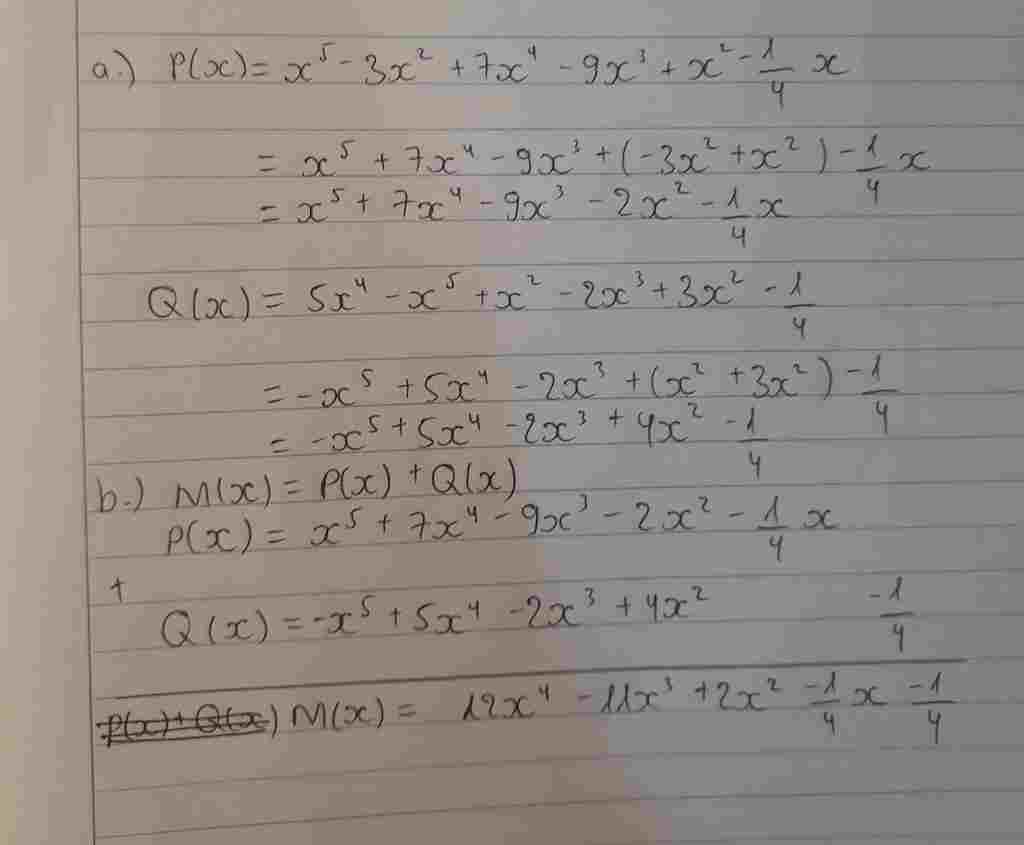 a.) P(x) = x⁵ - 3x² + 7x⁴ - 9x³ + x² - 1/4 x
= x⁵ + 7x⁴ - 9x³ + (-3x² + x²) - 1/4 x
= x⁵ + 7x⁴ - 9x³ - 2x² - 1/4 x
Q(x) = 5x⁴ - x⁵ + x² - 2x³ + 3x² - 1/4
= -x⁵ + 5x⁴ - 2x³ + (x² + 3x²) - 1/4
= -x⁵ + 5x⁴ - 2x³ + 4x² - 1/4
b.) M(x) = P(x) + Q(x)
P(x) = x⁵ + 7x⁴ - 9x³ - 2x² - 1/4 x
+
Q(x) = -x⁵ + 5x⁴ - 2x³ + 4x² - 1/4
P(x) + Q(x) M(x) = 12x⁴ - 11x³ + 2x² - 1/4 x - 1/4